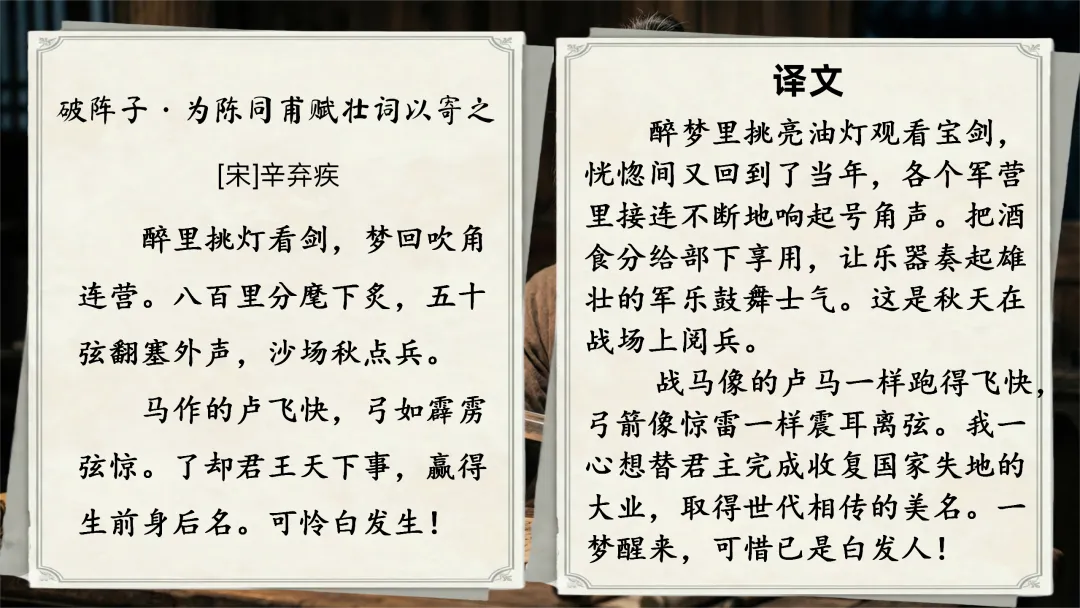 破阵子·为陈同甫赋壮词以寄之
[宋]辛弃疾
醉里挑灯看剑，梦回吹角
连营。八百里分麾下炙，五十
弦翻塞外声，沙场秋点兵。
马作的卢飞快，弓如霹雳
弦惊。了却君王天下事，赢得
生前身后名。可怜白发生！
译文
醉梦里挑亮油灯观看宝剑，
恍惚间又回到了当年，各个军营
里接连不断地响起号角声。把酒
食分给部下享用，让乐器奏起雄
壮的军乐鼓舞士气。这是秋天在
战场上阅兵。
战马像的卢马一样跑得飞快，
弓箭像惊雷一样震耳离弦。我一
心想替君主完成收复国家失地的
大业，取得世代相传的美名。一
梦醒来，可惜已是白发人！